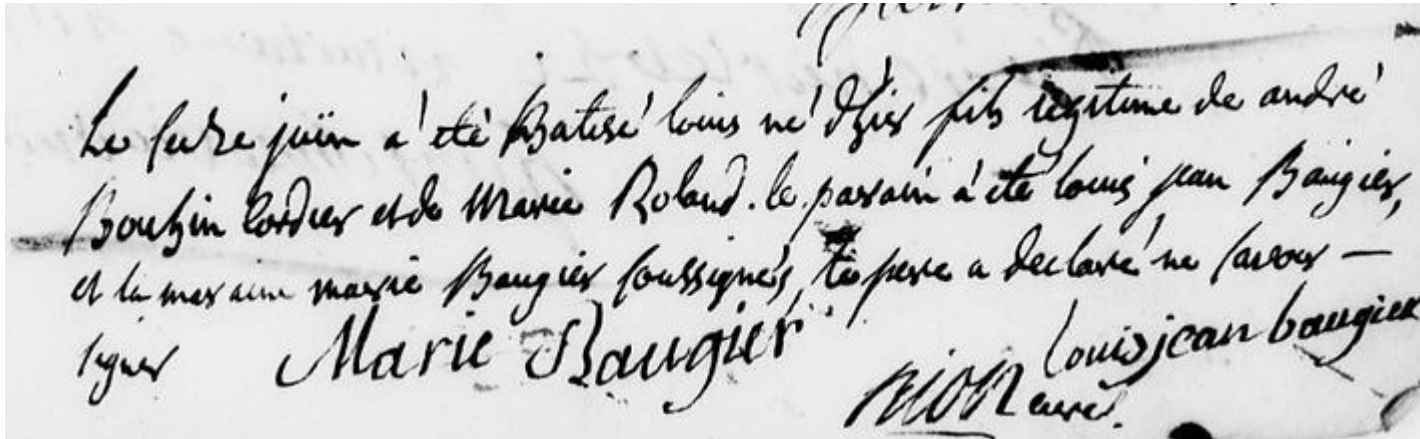 Le seize juin a été Batisé louis né d'hier fils legitime de andré
Bouchin Cordier et de Marie Roland. le parain a été louis jean Baugier,
et la maraine marie Baugier soussignés, le pere a declaré ne savoir —
signer Marie Baugier louis jean baugier
curé.